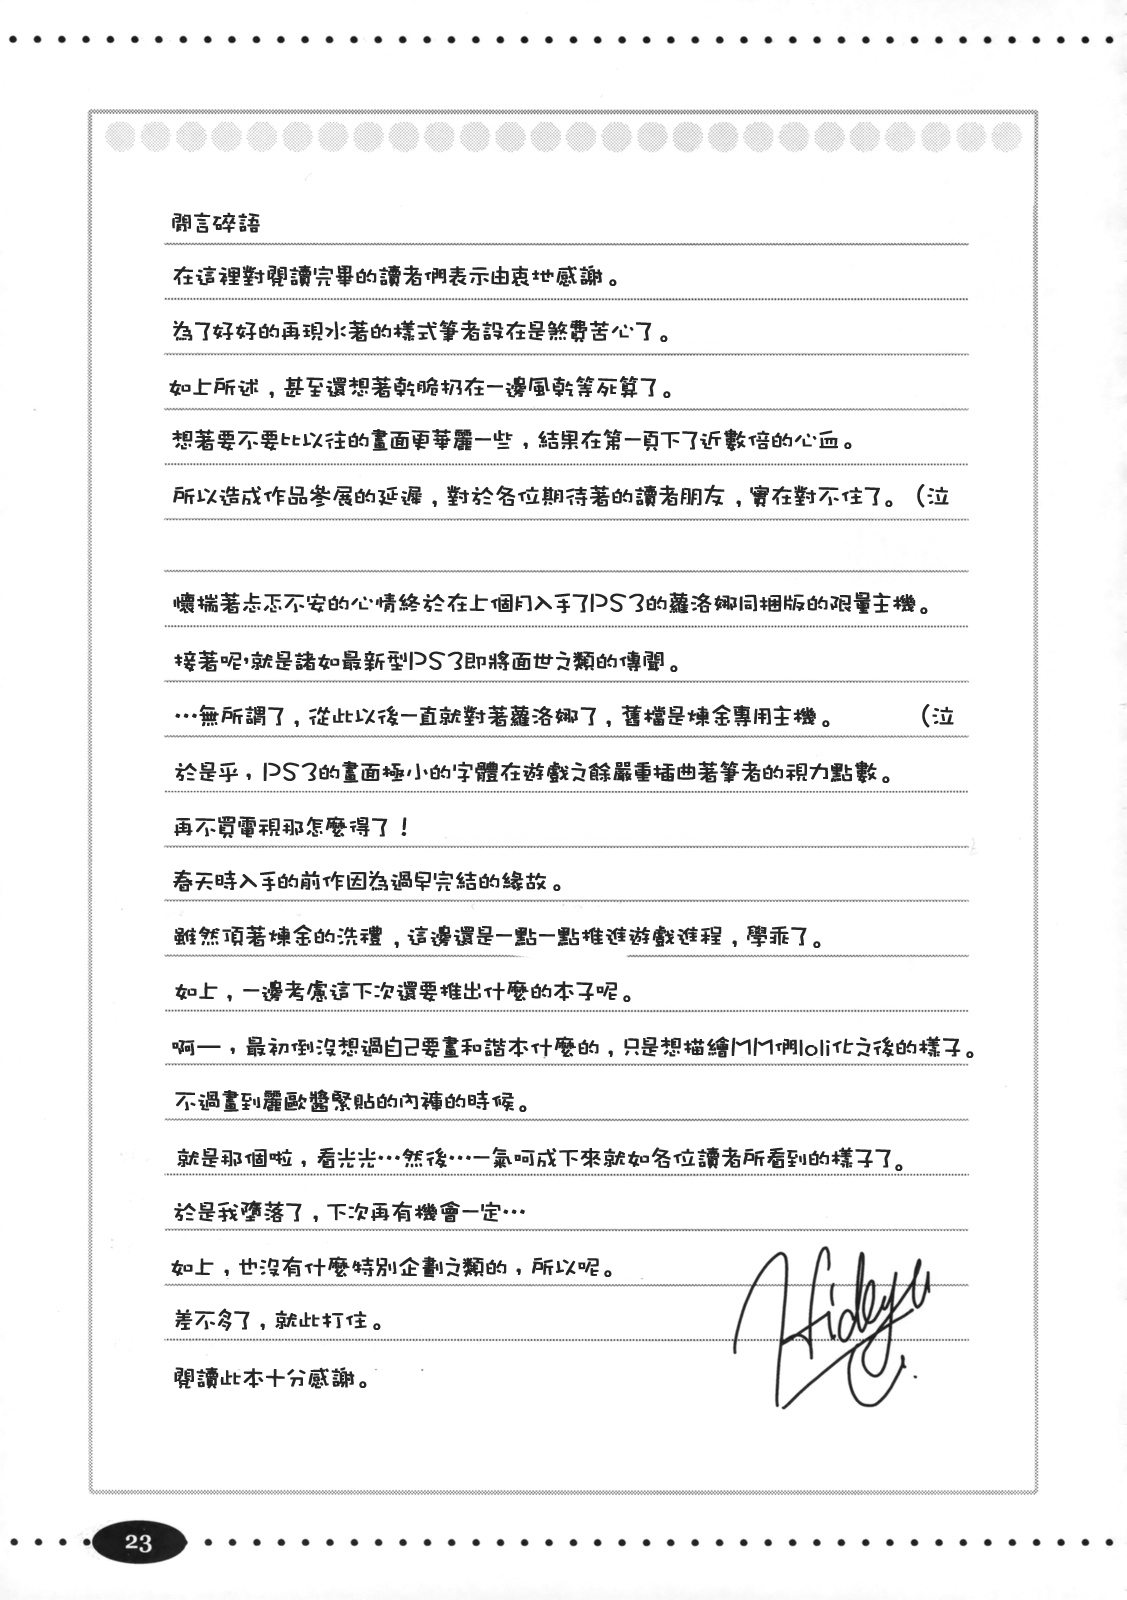 閒言碎語
在這裡對閱讀完畢的讀者們表示由衷地感謝。
為了好好的再現水著的樣式筆者設在是煞費苦心了。
如上所述，甚至還想著乾脆扔在一邊風乾等死算了。
想著要不要比以往的畫面更華麗一些，結果在第一頁下了近數倍的心血。
所以造成作品參展的延遲，對於各位期待著的讀者朋友，實在對不住了。（泣
懷揣著忐忑不安的心情終於在上個月入手了PS3的蘿洛娜同捆版的限量主機。
接著呢，就是諸如最新型PS3即將面世之類的傳聞。
…無所謂了，從此以後一直就對著蘿洛娜了，舊檔是煉金專用主機。　　　（泣
於是乎，PS3的畫面極小的字體在遊戲之餘嚴重插曲著筆者的視力點數。
再不買電視那怎麼得了！
春天時入手的前作因為過早完結的緣故。
雖然頂著煉金的洗禮，這邊還是一點一點推進遊戲進程，學乖了。
如上，一邊考慮這下次還要推出什麼的本子呢。
啊一，最初倒沒想過自己要畫和諧本什麼的，只是想描繪MM們loli化之後的樣子。
不過畫到麗歐醬緊貼的內褲的時候。
就是那個啦，看光光…然後…一氣呵成下來就如各位讀者所看到的樣子了。
於是我墮落了，下次再有機會一定…
如上，也沒有什麼特別企劃之類的，所以呢。
差不多了，就此打住。
閱讀此本十分感謝。
Hideyu
23